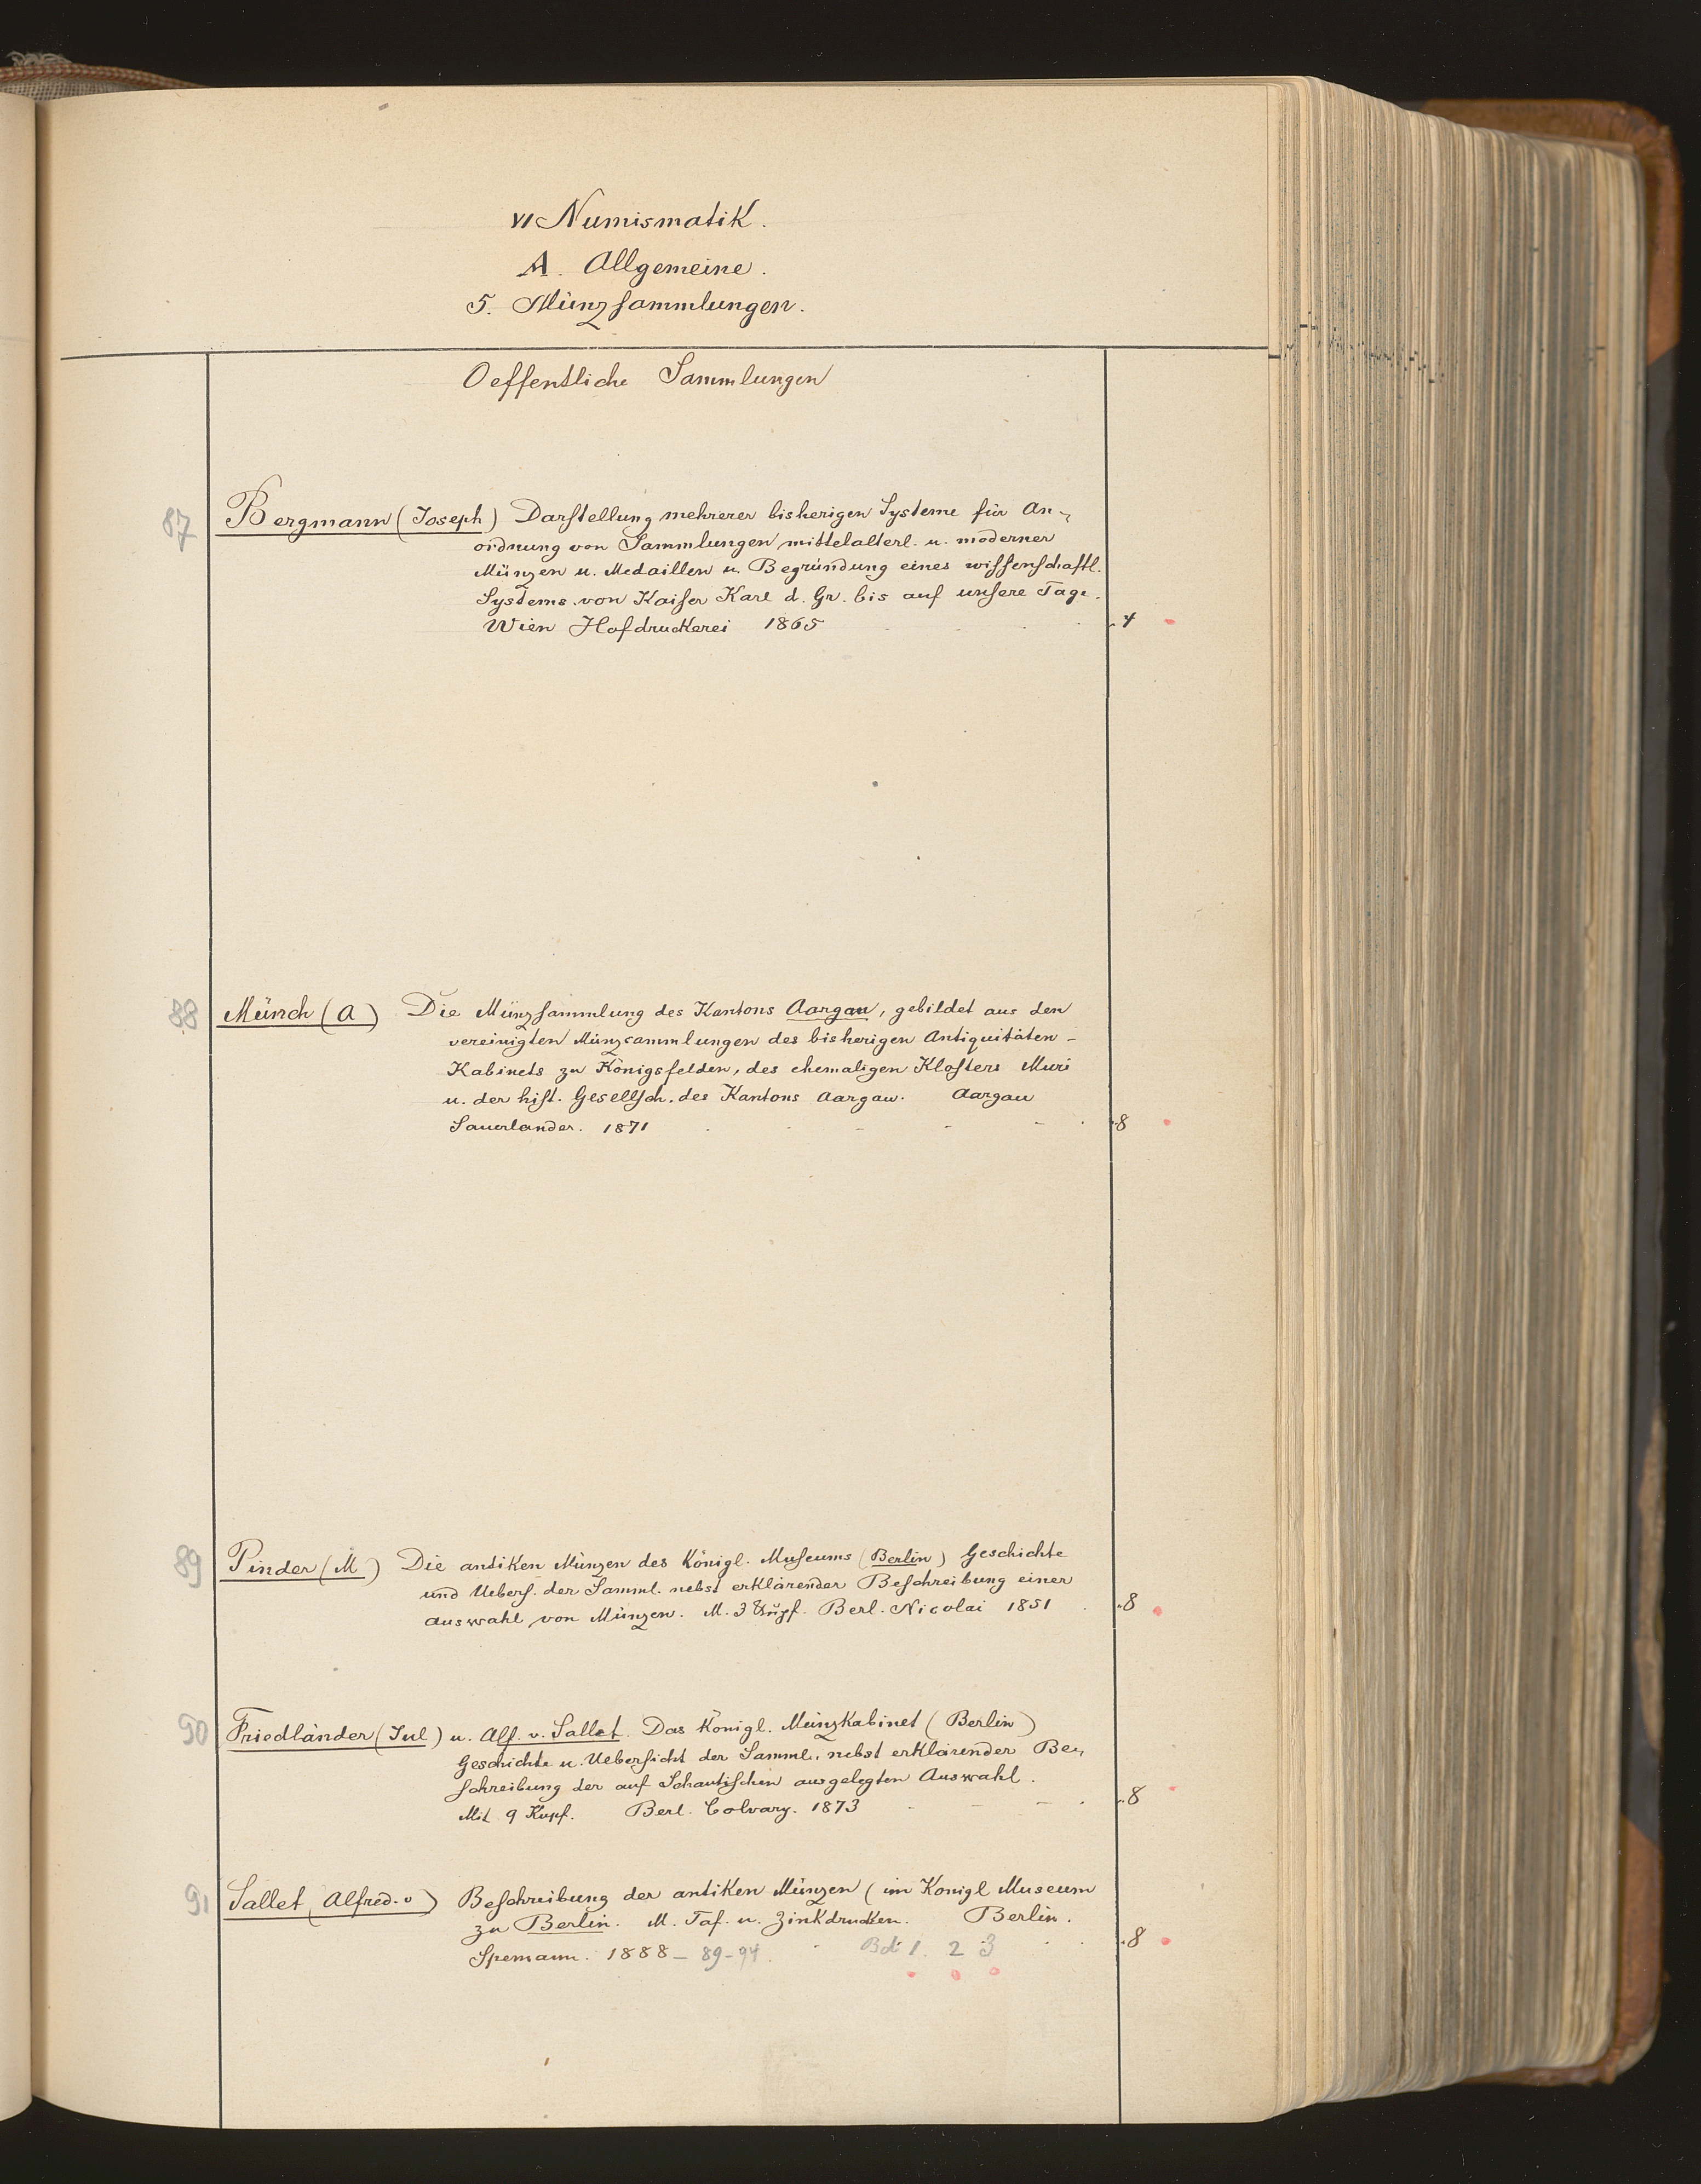 VI Numismatik.
A. Allgemeine.
5. Münzsammlungen.
Oeffentliche Sammlungen
87 Bergmann (Joseph) Darstellung mehrerer bisherigen Systeme für An-
ordnung von Sammlungen mittelalterl. u. moderner
Münzen u. Medaillen u. Begründung eines wissenschaftl.
Systems von Kaiser Karl d. Gr. bis auf unsere Tage.
Wien Hofdruckerei 1865 4
88 Münch (A) Die Münzsammlung des Kantons Aargau, gebildet aus den
vereinigten Münzsammlungen des bisherigen Antiquitäten-
Kabinets zu Königsfelden, des ehemaligen Klosters Muri
u. der hist. Gesellsch. des Kantons Aargau. Aargau
Sauerlander. 1871 8
89 Pinder (M) Die antiken Münzen des Königl. Museums (Berlin) Geschichte
und Uebers. der Samml. nebst erklärender Beschreibung einer
Auswahl von Münzen. M. 3 Kupf. Berl. Nicolai 1851 8
90 Friedländer (Jul) u. Alf. v. Sallet. Das Königl. Münzkabinet (Berlin)
Geschichte u. Uebersicht der Samml. nebst erklärender Be-
schreibung der auf Schautischen ausgelegten Auswahl.
Mit 9 Kupf. Berl. Calvary. 1873 8
91 Sallet (Alfred. v) Beschreibung der antiken Münzen (im Königl Museum
zu Berlin. M. Taf. u. Zinkdrucken. Berlin.
Spemann. 1888 - 89 - 94. Bd. 1. 2 3 8